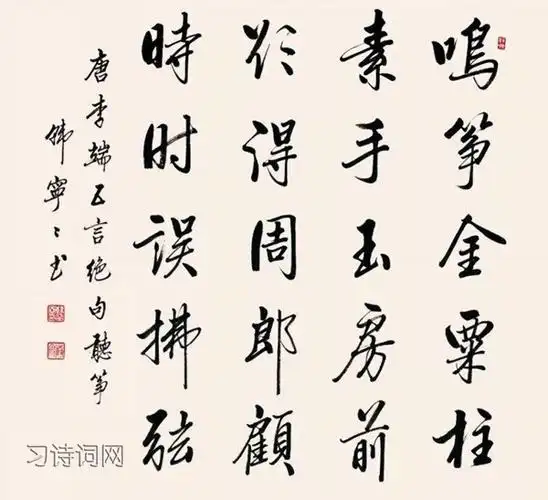 鳴筝金粟柱
素手玉房前
欲得周郎顧
時时誤拂弦
唐李端五言绝句聽筝
韩寧〻书
习诗词网